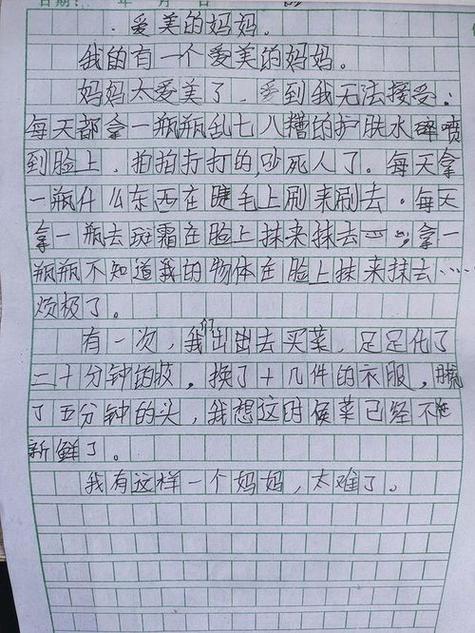 日期： 年 月 日
爱美的妈妈。
我的有一个爱美的妈妈。
妈妈太爱美了，到我无法接受：
每天都拿一瓶瓶乱七八糟的护肤水喷
到脸上，拍拍打打的，吵死人了。每天拿
一瓶什么东西在睫毛上刷来刷去。每天
拿一瓶去斑霜在脸上抹来抹去；拿一
瓶瓶不知道我的物体在脸上抹来抹去……
烦极了。
有一次，我们出出去买菜，足足化了
二十分钟的妆，换了十几件的衣服，梳
了五分钟的头，我想这时候菜已经不
新鲜了。
我有这样一个妈妈，太难了。